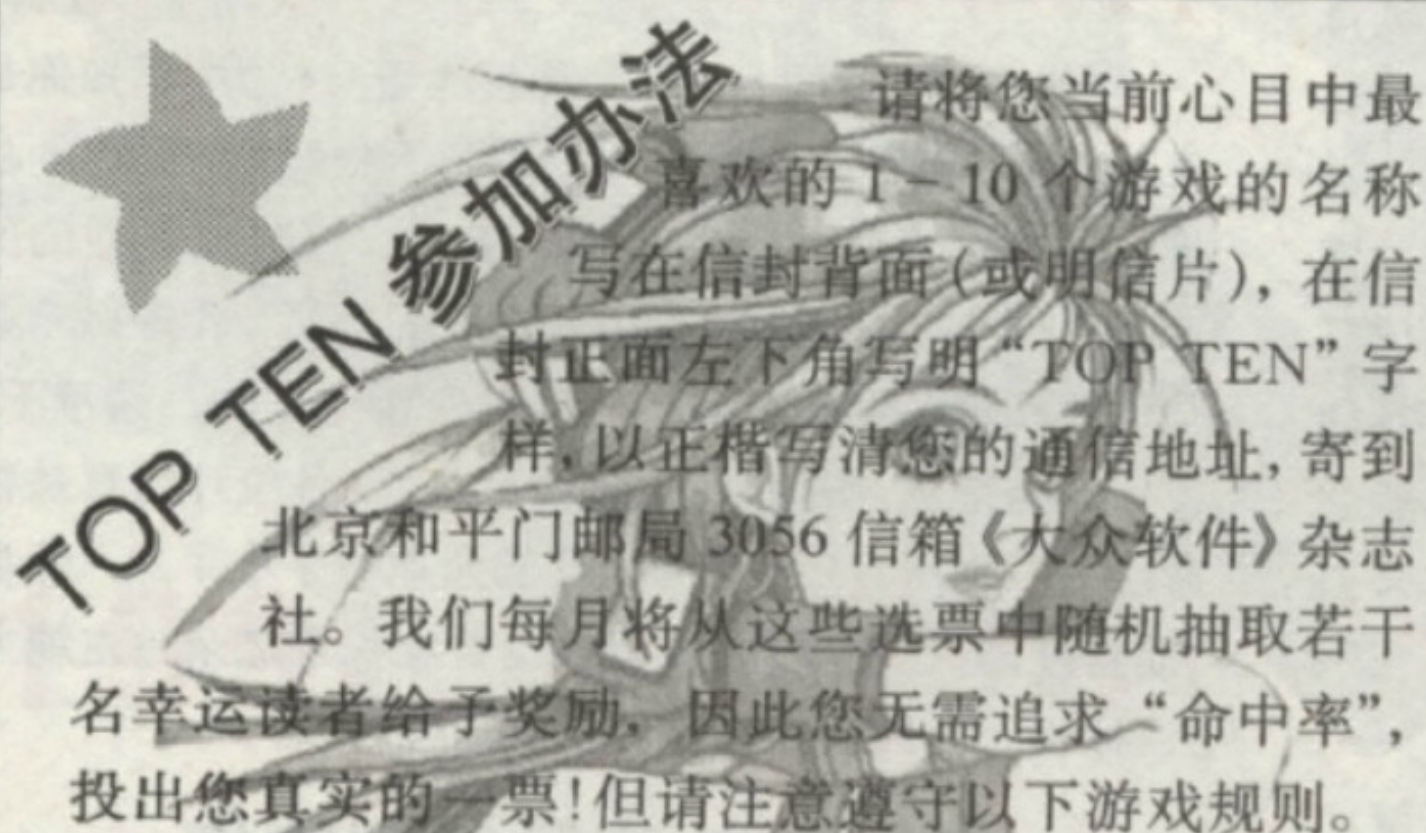 TOP TEN 参加办法
请将您当前心目中最
喜欢的 1－10 个游戏的名称
写在信封背面(或明信片)，在信
封正面左下角写明“TOP TEN”字
样，以正楷写清您的通信地址，寄到
北京和平门邮局 3056 信箱《大众软件》杂志
社。我们每月将从这些选票中随机抽取若干
名幸运读者给予奖励，因此您无需追求“命中率”，
投出您真实的一票!但请注意遵守以下游戏规则。